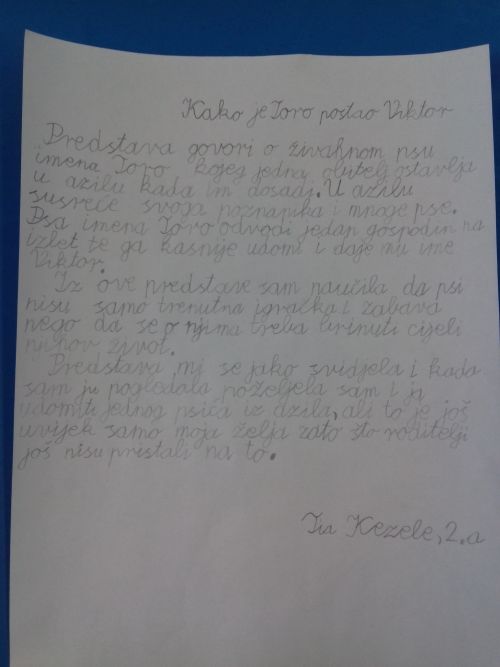 Kako je Toro postao Viktor
Predstava govori o živahnom psu
imena Toro kojeg jedna obitelj ostavlja
u azilu kada im dosadi. U azilu
susreće svoga poznanika i mnoge pse.
Psa imena Toro odvodi jedan gospodin na
izlet te ga kasnije udomi i daje mu ime
Viktor.
Iz ove predstave sam naučila da psi
nisu samo trenutna igračka i zabava
nego da se o njima treba brinuti cijeli
njihov život.
Predstava mi se jako svidjela i kada
sam ju pogledala poželjela sam i ja
udomiti jednog psića iz azila, ali to je još
uvijek samo moja želja zato što roditelji
još nisu pristali na to.
Tia Kezele, 2.a